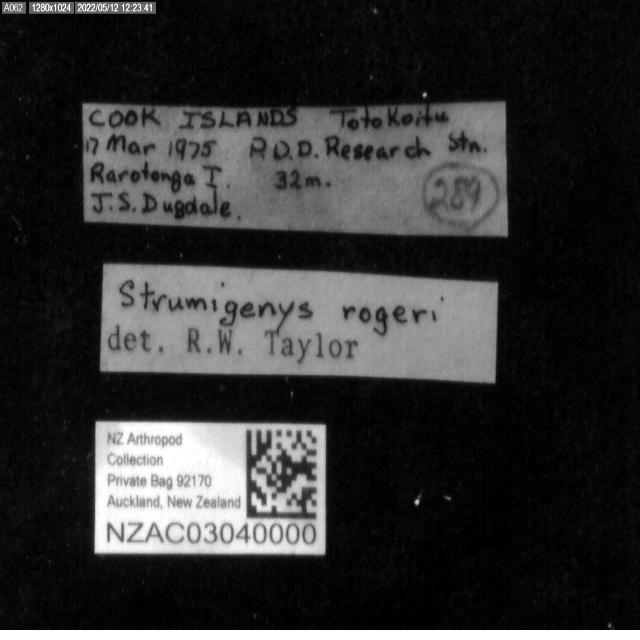 A062 1280x1024 2022/05/12 12:23:41
COOK ISLANDS Totokoitu
17 Mar 1975 P.D.D. Research Stn.
Rarotonga I. 32m.
J.S. Dugdale. 289
Strumigenys rogeri
det. R.W. Taylor
NZ Arthropod
Collection
Private Bag 92170
Auckland, New Zealand
NZAC03040000